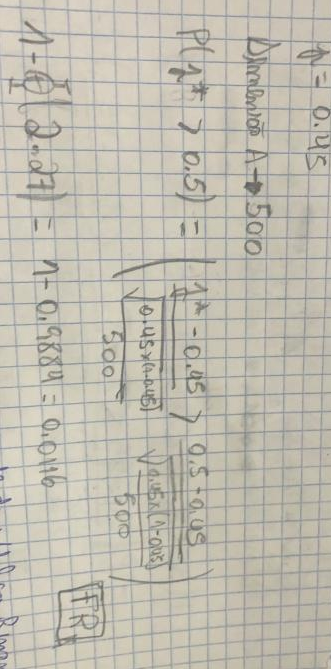 p = 0.45
Dimensão A → 500
P(p* > 0.5) = ( p* - 0.45 / √(0.45×(1-0.45) / 500) > 0.5 - 0.45 / √(0.45×(1-0.45) / 500) )
1 - Φ(2.27) = 1 - 0.9884 = 0.0116
FR